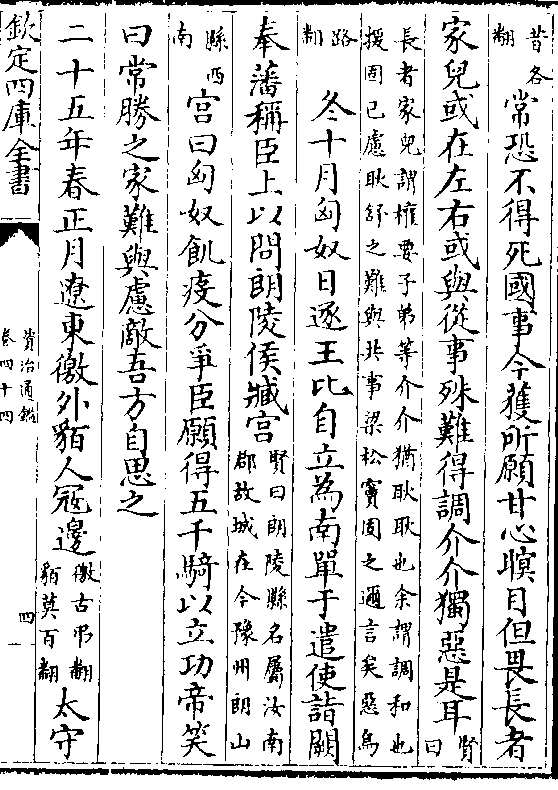 昔各
翻
常恐不得死國事今獲所願甘心瞑目但畏長者
家兒或在左右或與從事殊難得調介介獨惡是耳賢曰
長者家兒謂權要子弟等介介猶耿耿也余謂調和也
援固已慮耿舒之難與共事梁松竇固之邇言矣惡烏
路
翻
冬十月匈奴日逐王比自立為南單于遣使詣闕
奉藩稱臣上以問朗陵侯臧宫
賢曰朗陵縣名屬汝南
郡故城在今豫州朗山
縣西
南
宫曰匈奴飢疫分爭臣願得五千騎以立功帝笑
曰常勝之家難與慮敵吾方自思之
二十五年春正月遼東徼外貊人寇邊
徼古弔翻
貊莫百翻
太守
欽定四庫全書
資治通鑑
卷四十四
四